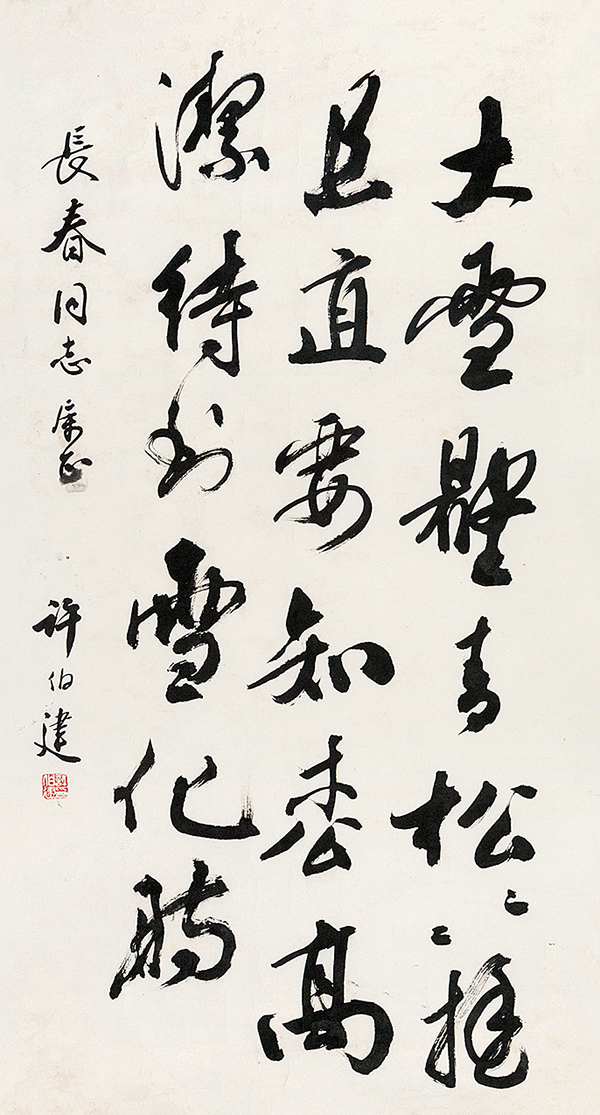 大雪壓青松々々挺
且直要知松高
潔待到雪化時
長春同志正
許伯建